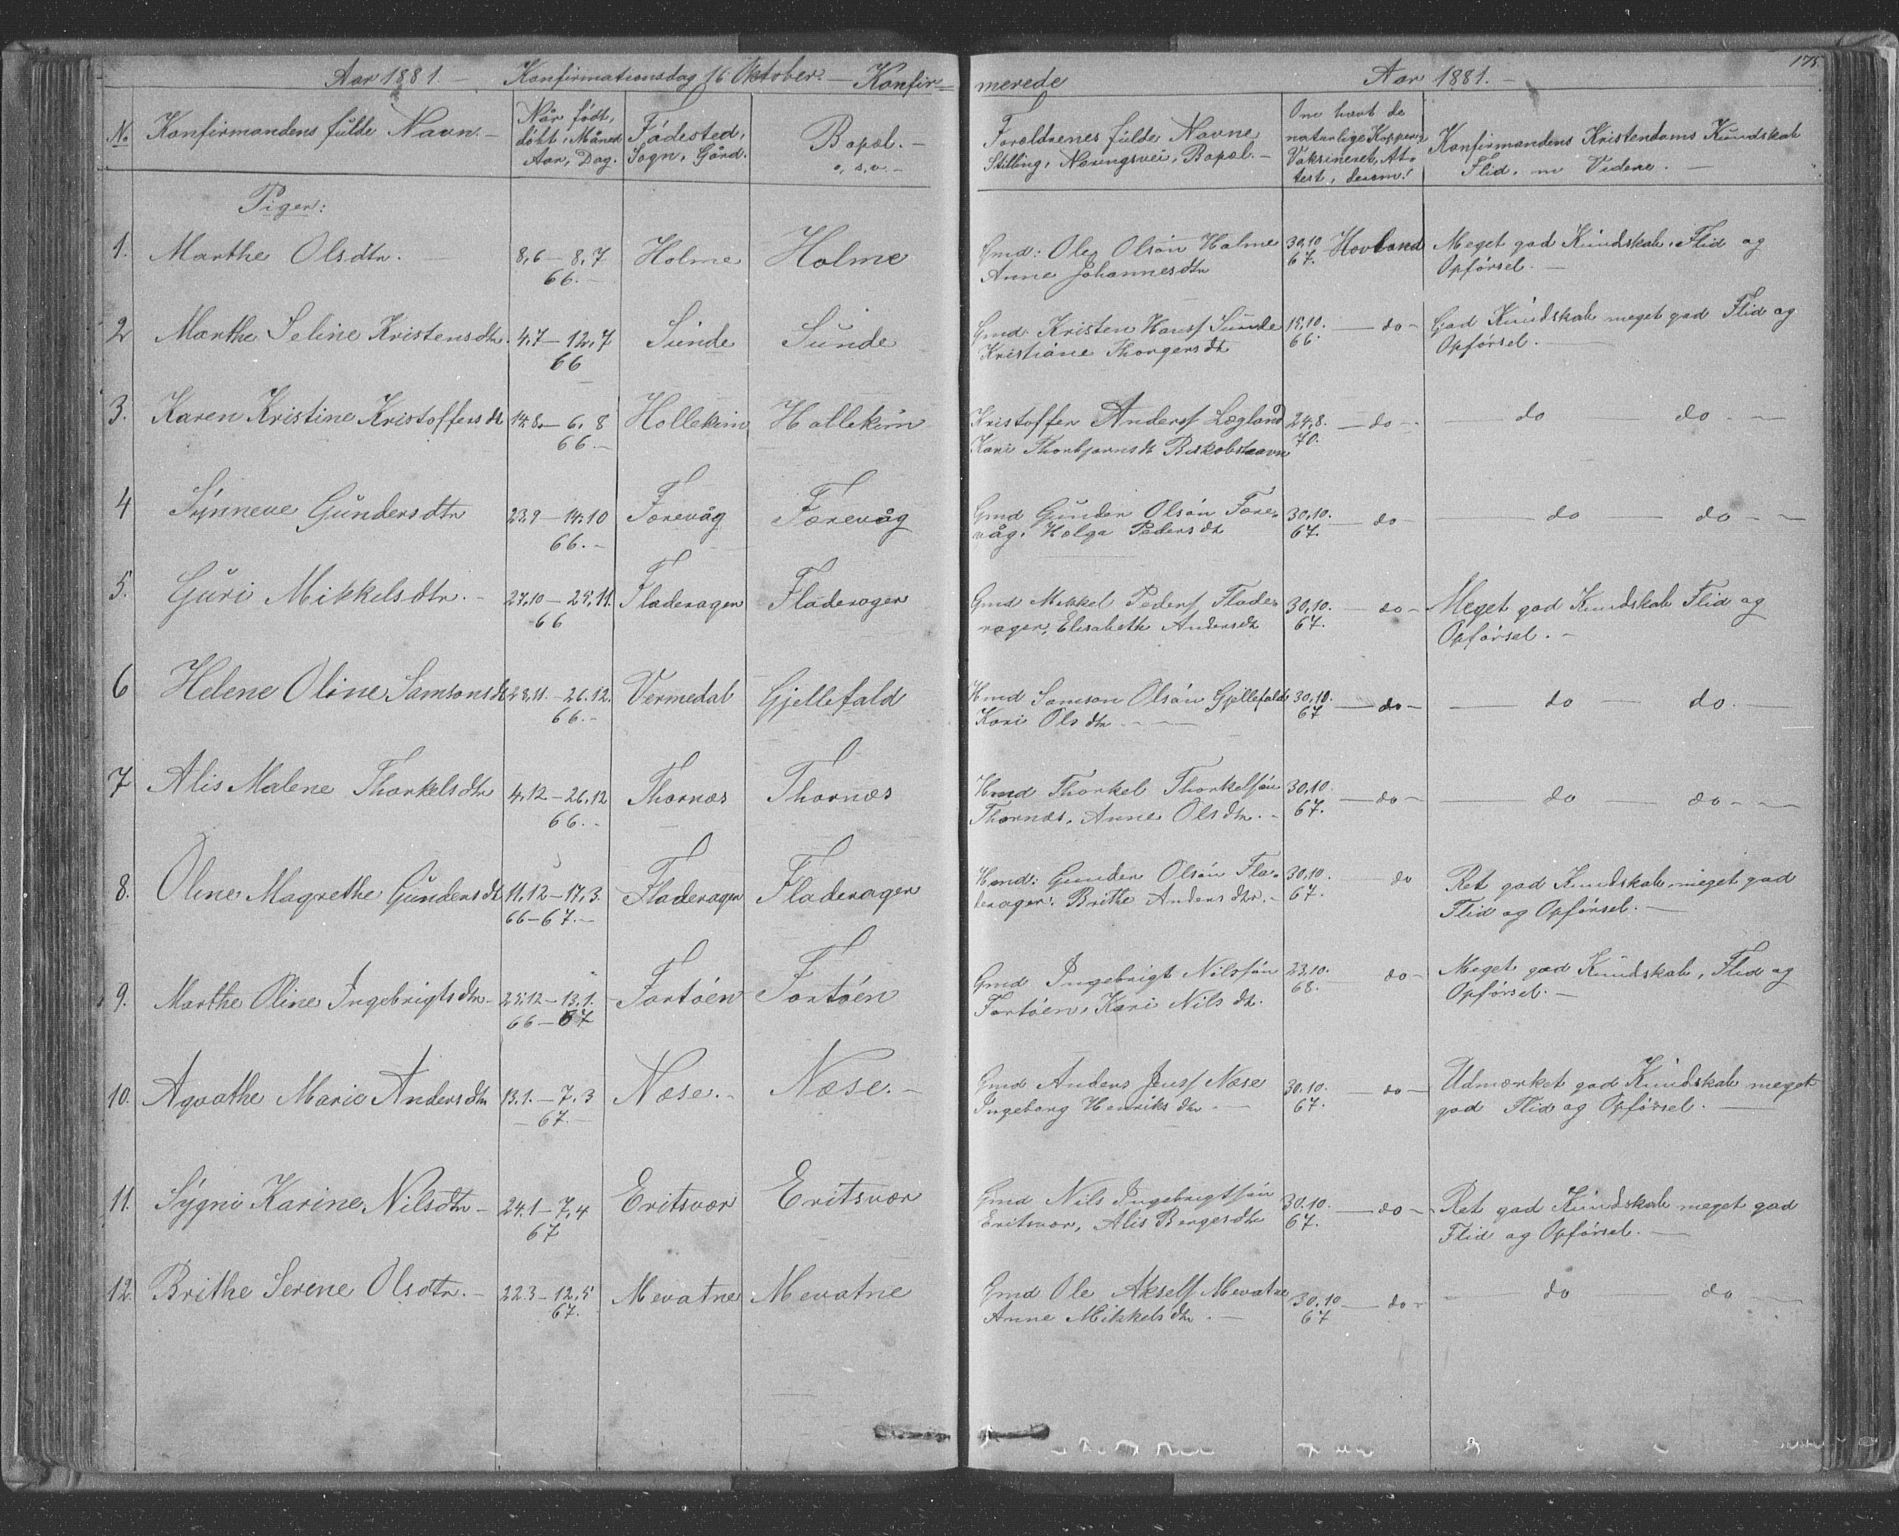 Aar 1881. — Konfirmationsdag 16 Oktober. — Konfir=
merede Aar 1881. — 175
No. Konfirmandens fulde Navn. —
Når født, døbt, Måned Aar, Dag.
Fødested, Sogn, Gård.
Bopæl. — o, s, v. —
Forældrenes fulde Navne
Stilling, Næringsvei, Bopæl. —
Om havt de naturlige Kopper, Vaksineret, Attest, derom!
Konfirmandens Kristendoms Kundskab
Flid, m Videre. —
Piger:
1. Marthe Olsdtr. — 8,6 — 8,7 Holme Holme Gmd: Ole Olsøn Holme 30,10 Hovland Meget god Kundskab, Flid og
66. — Anne Johannesdtr 67. Opførsel. —
2 Marthe Seline Kristensdtr. 4,7 — 12,7 Sunde Sunde Gmd. Kristen Hansf Sunde 15,10. — do — God Kundskab meget god Flid og
66 Kristiane Thorgersdtr 66. Opførsel. —
3. Karen Kristine Kristoffersdt 14,8. — 6,8 Hollekim Hollekim Kristoffer Andersf Lægland 24,8. — do — — do — do — —
66. — Kari Thorbjørnsdt Biskobshavn 70.
4 Synneve Gundersdtr 23,9 — 14,10 Færevåg Færevåg Gmd Gunder Olsøn Fære= 30,10. — do — — do — do — —
66. — våg, Helga Pedersdt 67.
5. Guri Mikkelsdtr. — 27,10 — 25,11. Fladerager Fladerager Gmd Mikkel Pedersf Flade= 30,10. — do — Meget god Kundskab Flid og
66 rager, Elisabeth Andersdt 67. Opførsel. —
6 Helene Oline Samsonsdt 28,11. — 26,12. Vermedal Gjellefald Hmd Samson Olsøn Gjellefald 30,10. — do — — do — do. —
66. — Kari Olsdtr — 67
7 Alis Malene Thorkelsdtr 4,12 — 26,12 Thornæs Thornæs Hmd Thorkel Thorkelsøn 30,10. — do — — do — do — —
66. — Thornæs, Anne Olsdtr. — 67.
8. Oline Magrethe Gundersdt 11,12 — 17,3. Fladerager Fladerager Hmd: Gunder Olsøn Fla= 30,10. do Ret god Kundskab meget god
66 — 67. — derager. Brithe Andersdtr. — 67. Flid og Opførsel. —
9. Marthe Oline Ingebrigtsdtr — 25,12 — 13,1. Fortøen Fortøen Gmd Ingebrigt Nilssøn 23,10. do — Meget god Kundskab, Flid og
66 — 67 Fortøen, Kari Nilsdtr. 68. Opførsel. —
10. Agathe Marie Andersdtr 13,1. — 7,3 Næse. — Næse. — Gmd Anders Jensf Næse 30,10. — do — Udmærket god Kundskab meget
67. — Ingeborg Henriksdtr — 67. god Flid og Opførsel. —
11. Sygni Karine Nilsdtr — 24,1 — 7,4 Eritsvær Eritsvær Gmd Nils Ingebrigtsøn 30,10. — do — Ret god Kundskab meget god
67 Eritsvær, Alis Børgesdtr 67. Flid og Opførsel. —
12. Brithe Serene Olsdtr. — 22,3 — 12,5 Mevatne Mevatne Gmd Ole Akself Mevatne 30,10 — do — — do — do — —
67. Anne Mikkelsdtr. — 67